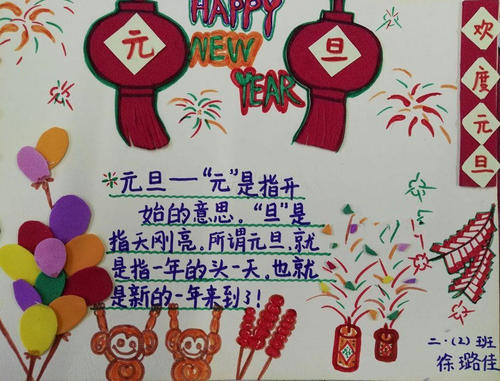 HAPPY
NEW
YEAR
元
旦
欢
度
元
旦
元旦——“元”是指开
始的意思。“旦”是
指天刚亮。所谓元旦，就
是指一年的头一天，也就
是新的一年来到了！
二·(2)班
徐璐佳